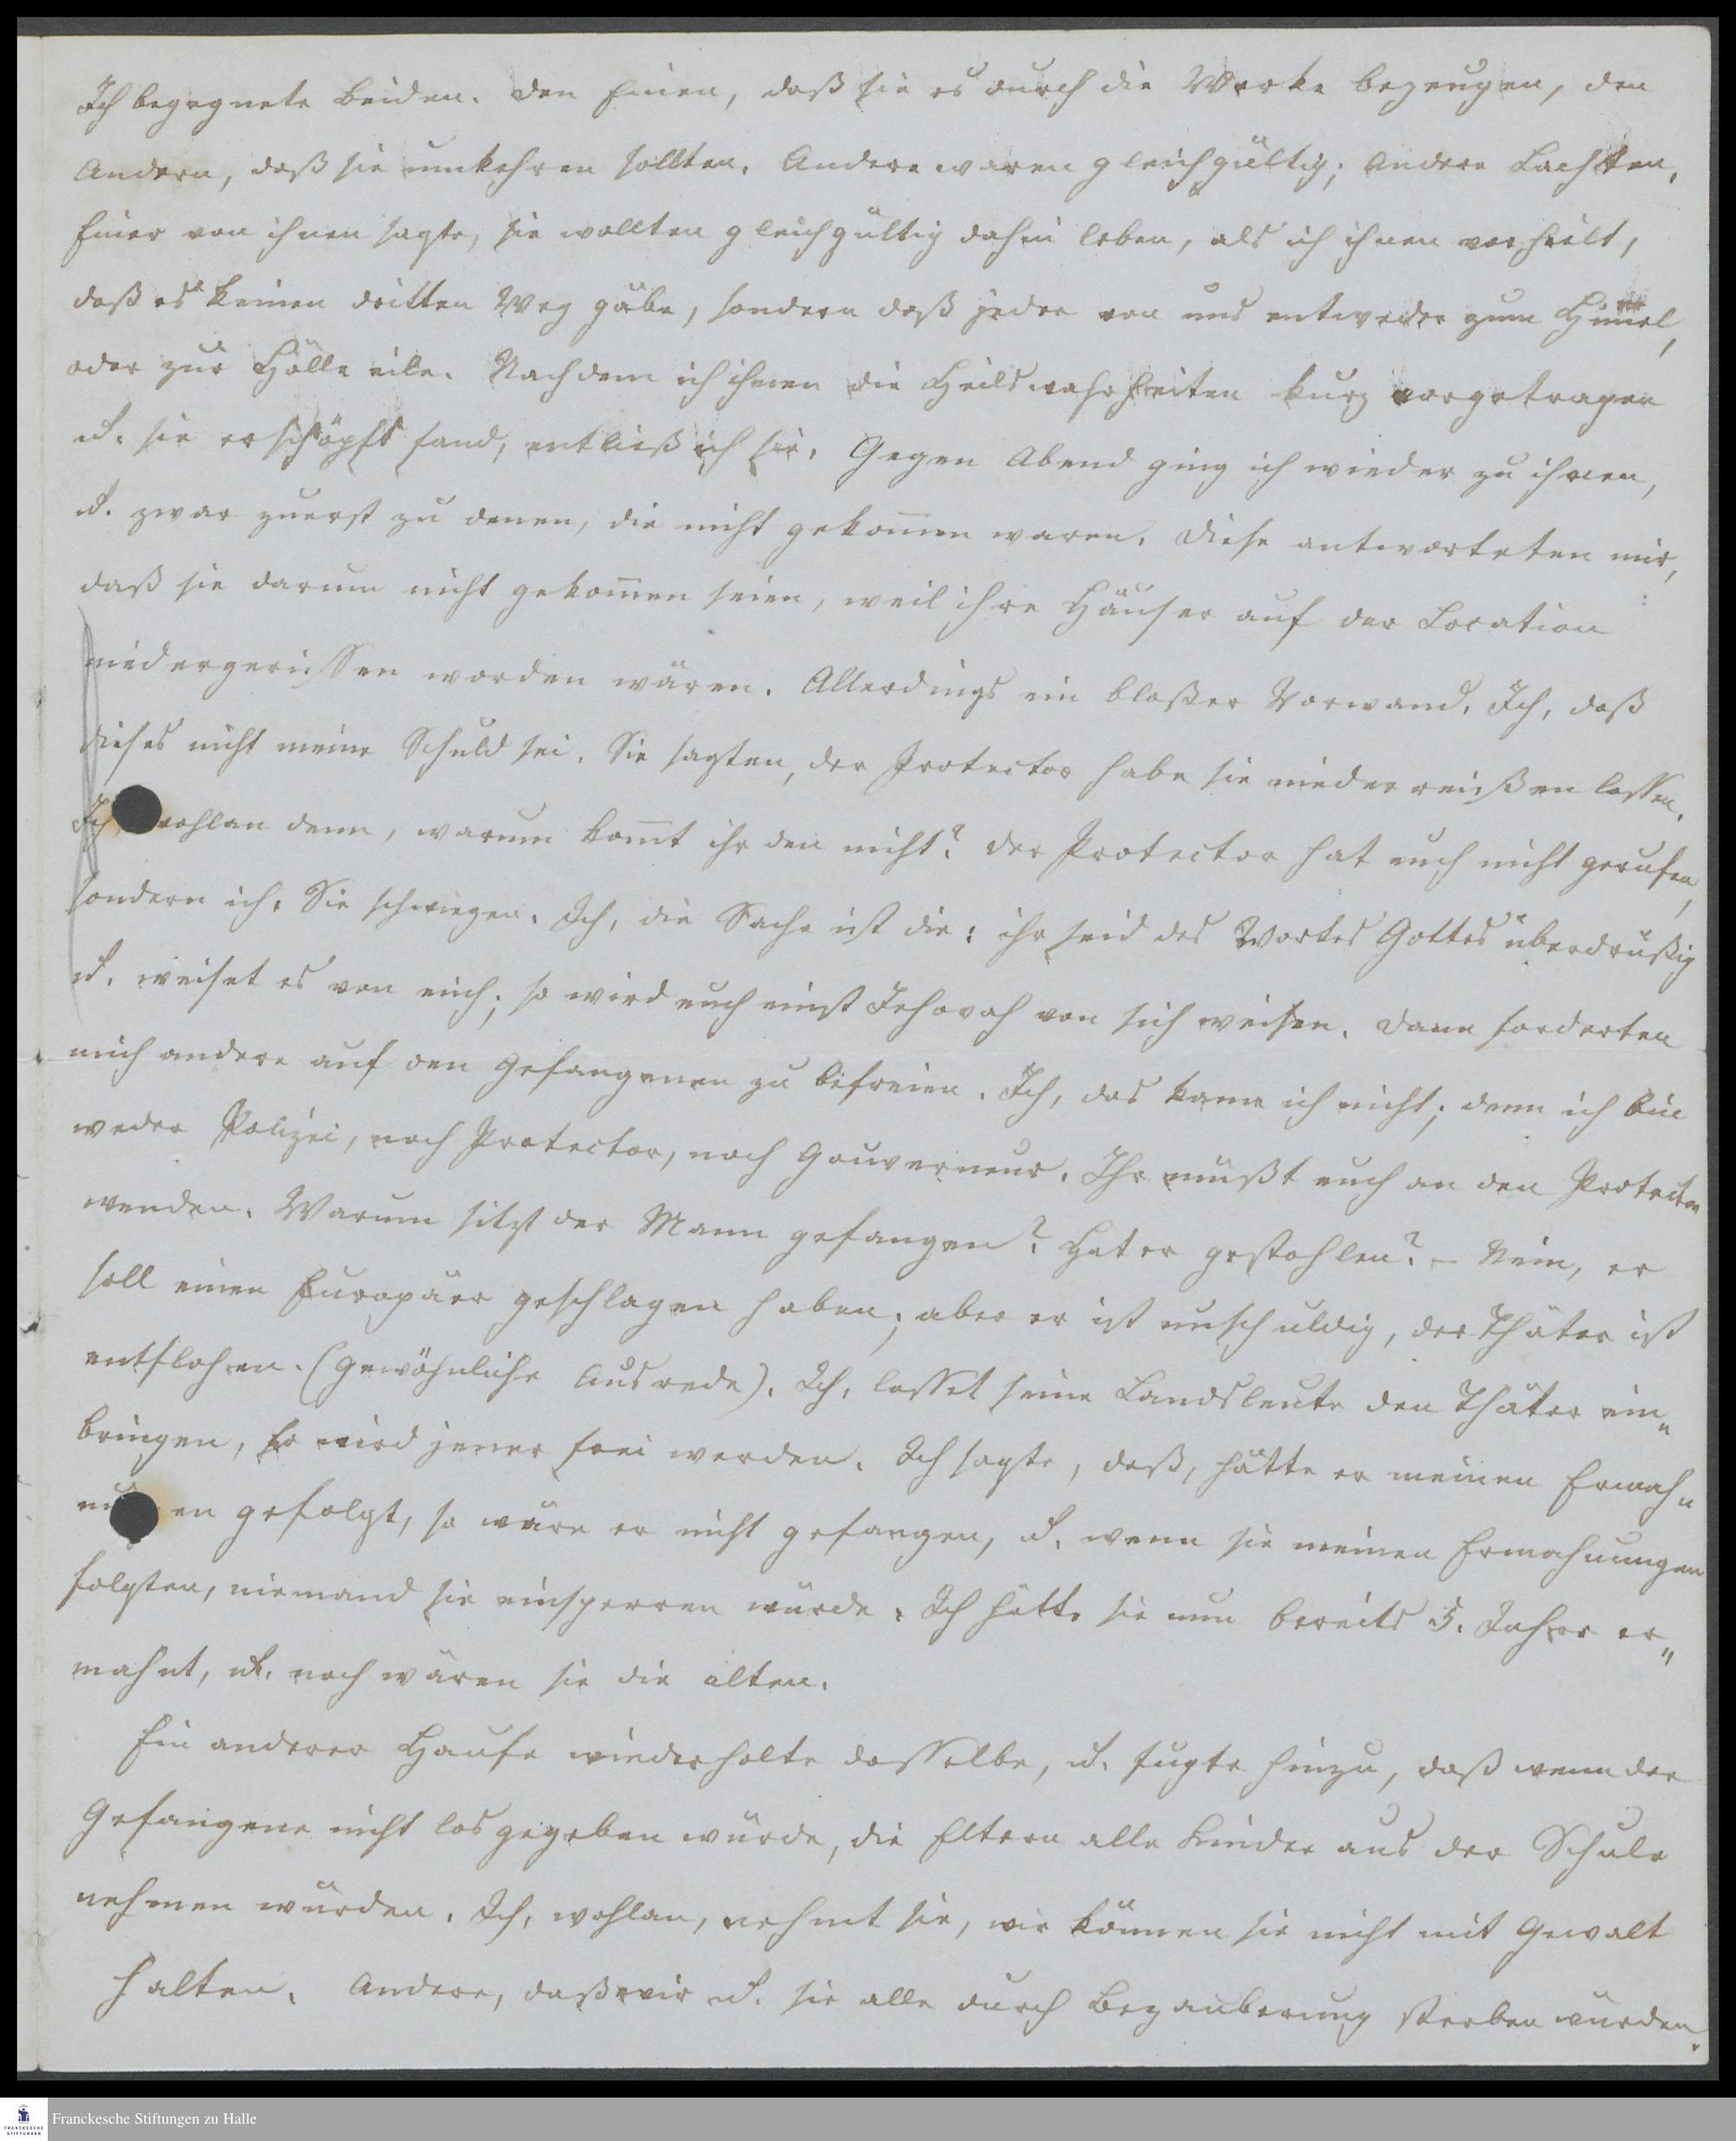 Ich begegnete beiden. Den Einen, daß sie es durch die Werke bezeugen, den
Andern, daß sie umkehren sollten. Andere waren gleichgültig; Andere Lachten,
Einer von ihnen sagte, sie wollten gleichgültig dahin leben, als ich ihnen vorhielt,
daß es keinen dritten Weg gäbe, sondern daß jeder von uns entweder zum Him̄el,
oder zur Hölle eile. Nachdem ich ihnen die Heilswahrheiten kurz vorgetragen
u. sie erschöpft fand, entließ ich sie. Gegen Abend ging ich wieder zu ihnen,
u. zwar zuerst zu denen, die nicht gekom̄en waren. Diese antworteten mir,
daß sie darum nicht gekom̄en seien, weil ihre Häuser auf der Location
niedergerissen worden wären. Allerdings ein bloßer Vorwand. Ich, daß
dieses nicht meine Schuld sei. Sie sagten, der Protector habe sie niederreißen lassen.
Ich, wohlan denn, warum kom̄t ihr den nicht? der Protector hat euch nicht gerufen,
sondern ich. Sie schwiegen. Ich, die Sache ist die: ihr seid des Wortes Gottes überdrüßig
u. weiset es von euch; so wird euch einst Jehovah von sich weisen. Dann forderten
mich andere auf den Gefangenen zu befreien. Ich, das kann ich nicht; denn ich bin
weder Polizei, noch Protector, noch Gouverneur. Ihr müßt euch an den Protector
wenden. Warum sitzt der Mann gefangen? Hat er gestohlen? – Nein, er
soll einen Europäer geschlagen haben; aber er ist unschuldig, der Thäter ist
entflohen. (Gewöhnliche Ausrede). Ich, lasset seine Landsleute den Thäter ein„
bringen, so wird jener frei werden. Ich sagte, daß, hätte er meinen Ermah„
nu en gefolgt, so wäre er nicht gefangen, u. wenn sie meinen Ermahnungen
folgten, niemand sie einsperren würde. Ich hätte sie nun bereits 5. Jahre er„
mahnt, u. noch wären sie die alten.
Ein anderer Haufe wiederholte dasselbe, u. fügte hinzu, daß wenn der
Gefangene nicht losgegeben würde, die Eltern alle Kinder aus der Schule
nehmen würden. Ich, wohlan, nehmt sie, wir können sie nicht mit Gewalt
halten. Andere, daß wir u. sie alle durch Bezauberung sterben würden.
Franckesche Stiftungen zu Halle
FRANCKESCHE
STIFTUNGEN